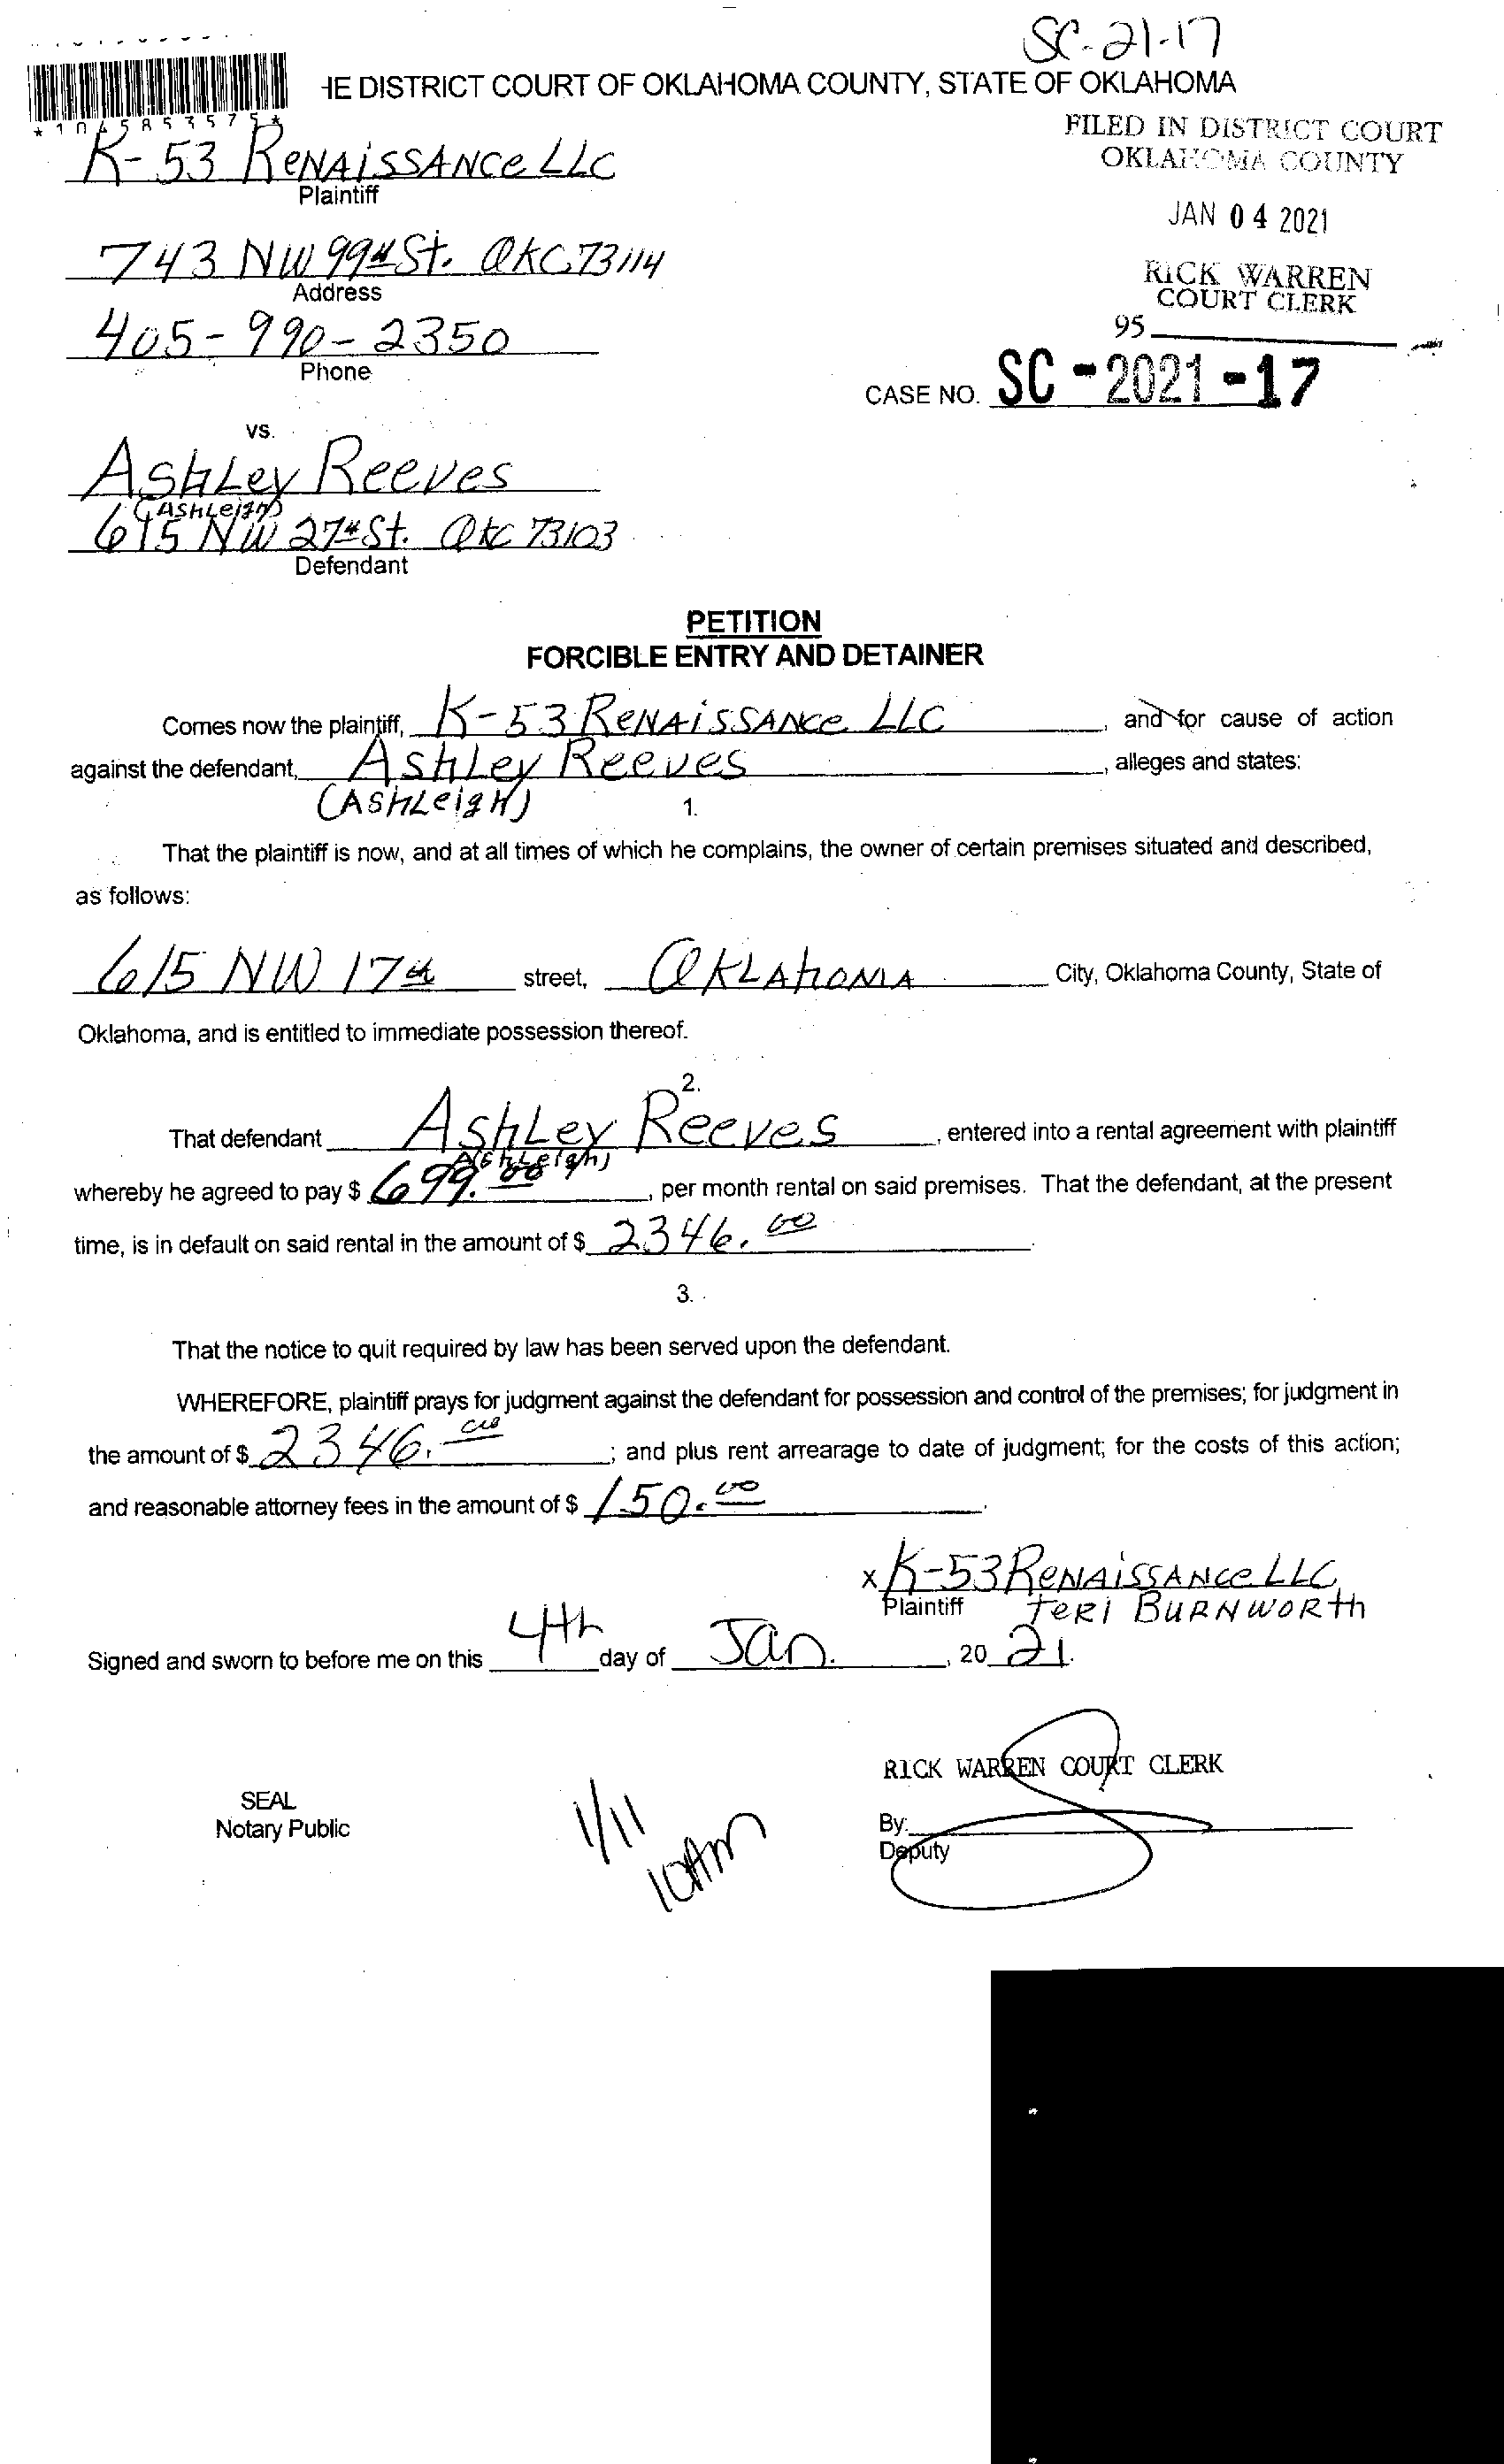 SC-21-17
HE DISTRICT COURT OF OKLAHOMA COUNTY, STATE OF OKLAHOMA
*1045853575*
FILED IN DISTRICT COURT
OKLAHOMA COUNTY
K-53 Renaissance LLC
Plaintiff
JAN 04 2021
743 NW 99th St. OKC 73114
Address
RICK WARREN
COURT CLERK
405-990-2350
Phone
95
CASE NO. SC-2021-17
vs.
Ashley Reeves
(Ashleigh)
615 NW 27th St. OKC 73103
Defendant
PETITION
FORCIBLE ENTRY AND DETAINER
Comes now the plaintiff, K-53 Renaissance LLC, and for cause of action
against the defendant, Ashley Reeves, alleges and states:
(Ashleigh)
1.
That the plaintiff is now, and at all times of which he complains, the owner of certain premises situated and described,
as follows:
615 NW 17th street, Oklahoma City, Oklahoma County, State of
Oklahoma, and is entitled to immediate possession thereof.
2.
That defendant Ashley Reeves, entered into a rental agreement with plaintiff
(Ashleigh)
whereby he agreed to pay $ 699.00, per month rental on said premises. That the defendant, at the present
time, is in default on said rental in the amount of $ 2346.00.
3.
That the notice to quit required by law has been served upon the defendant.
WHEREFORE, plaintiff prays for judgment against the defendant for possession and control of the premises; for judgment in
the amount of $ 2346.00; and plus rent arrearage to date of judgment; for the costs of this action;
and reasonable attorney fees in the amount of $ 150.00.
x K-53 Renaissance LLC
Plaintiff Teri Burnworth
Signed and sworn to before me on this 4th day of Jan., 20 21.
RICK WARREN COURT CLERK
SEAL
Notary Public
1/11
10Am
By:
Deputy